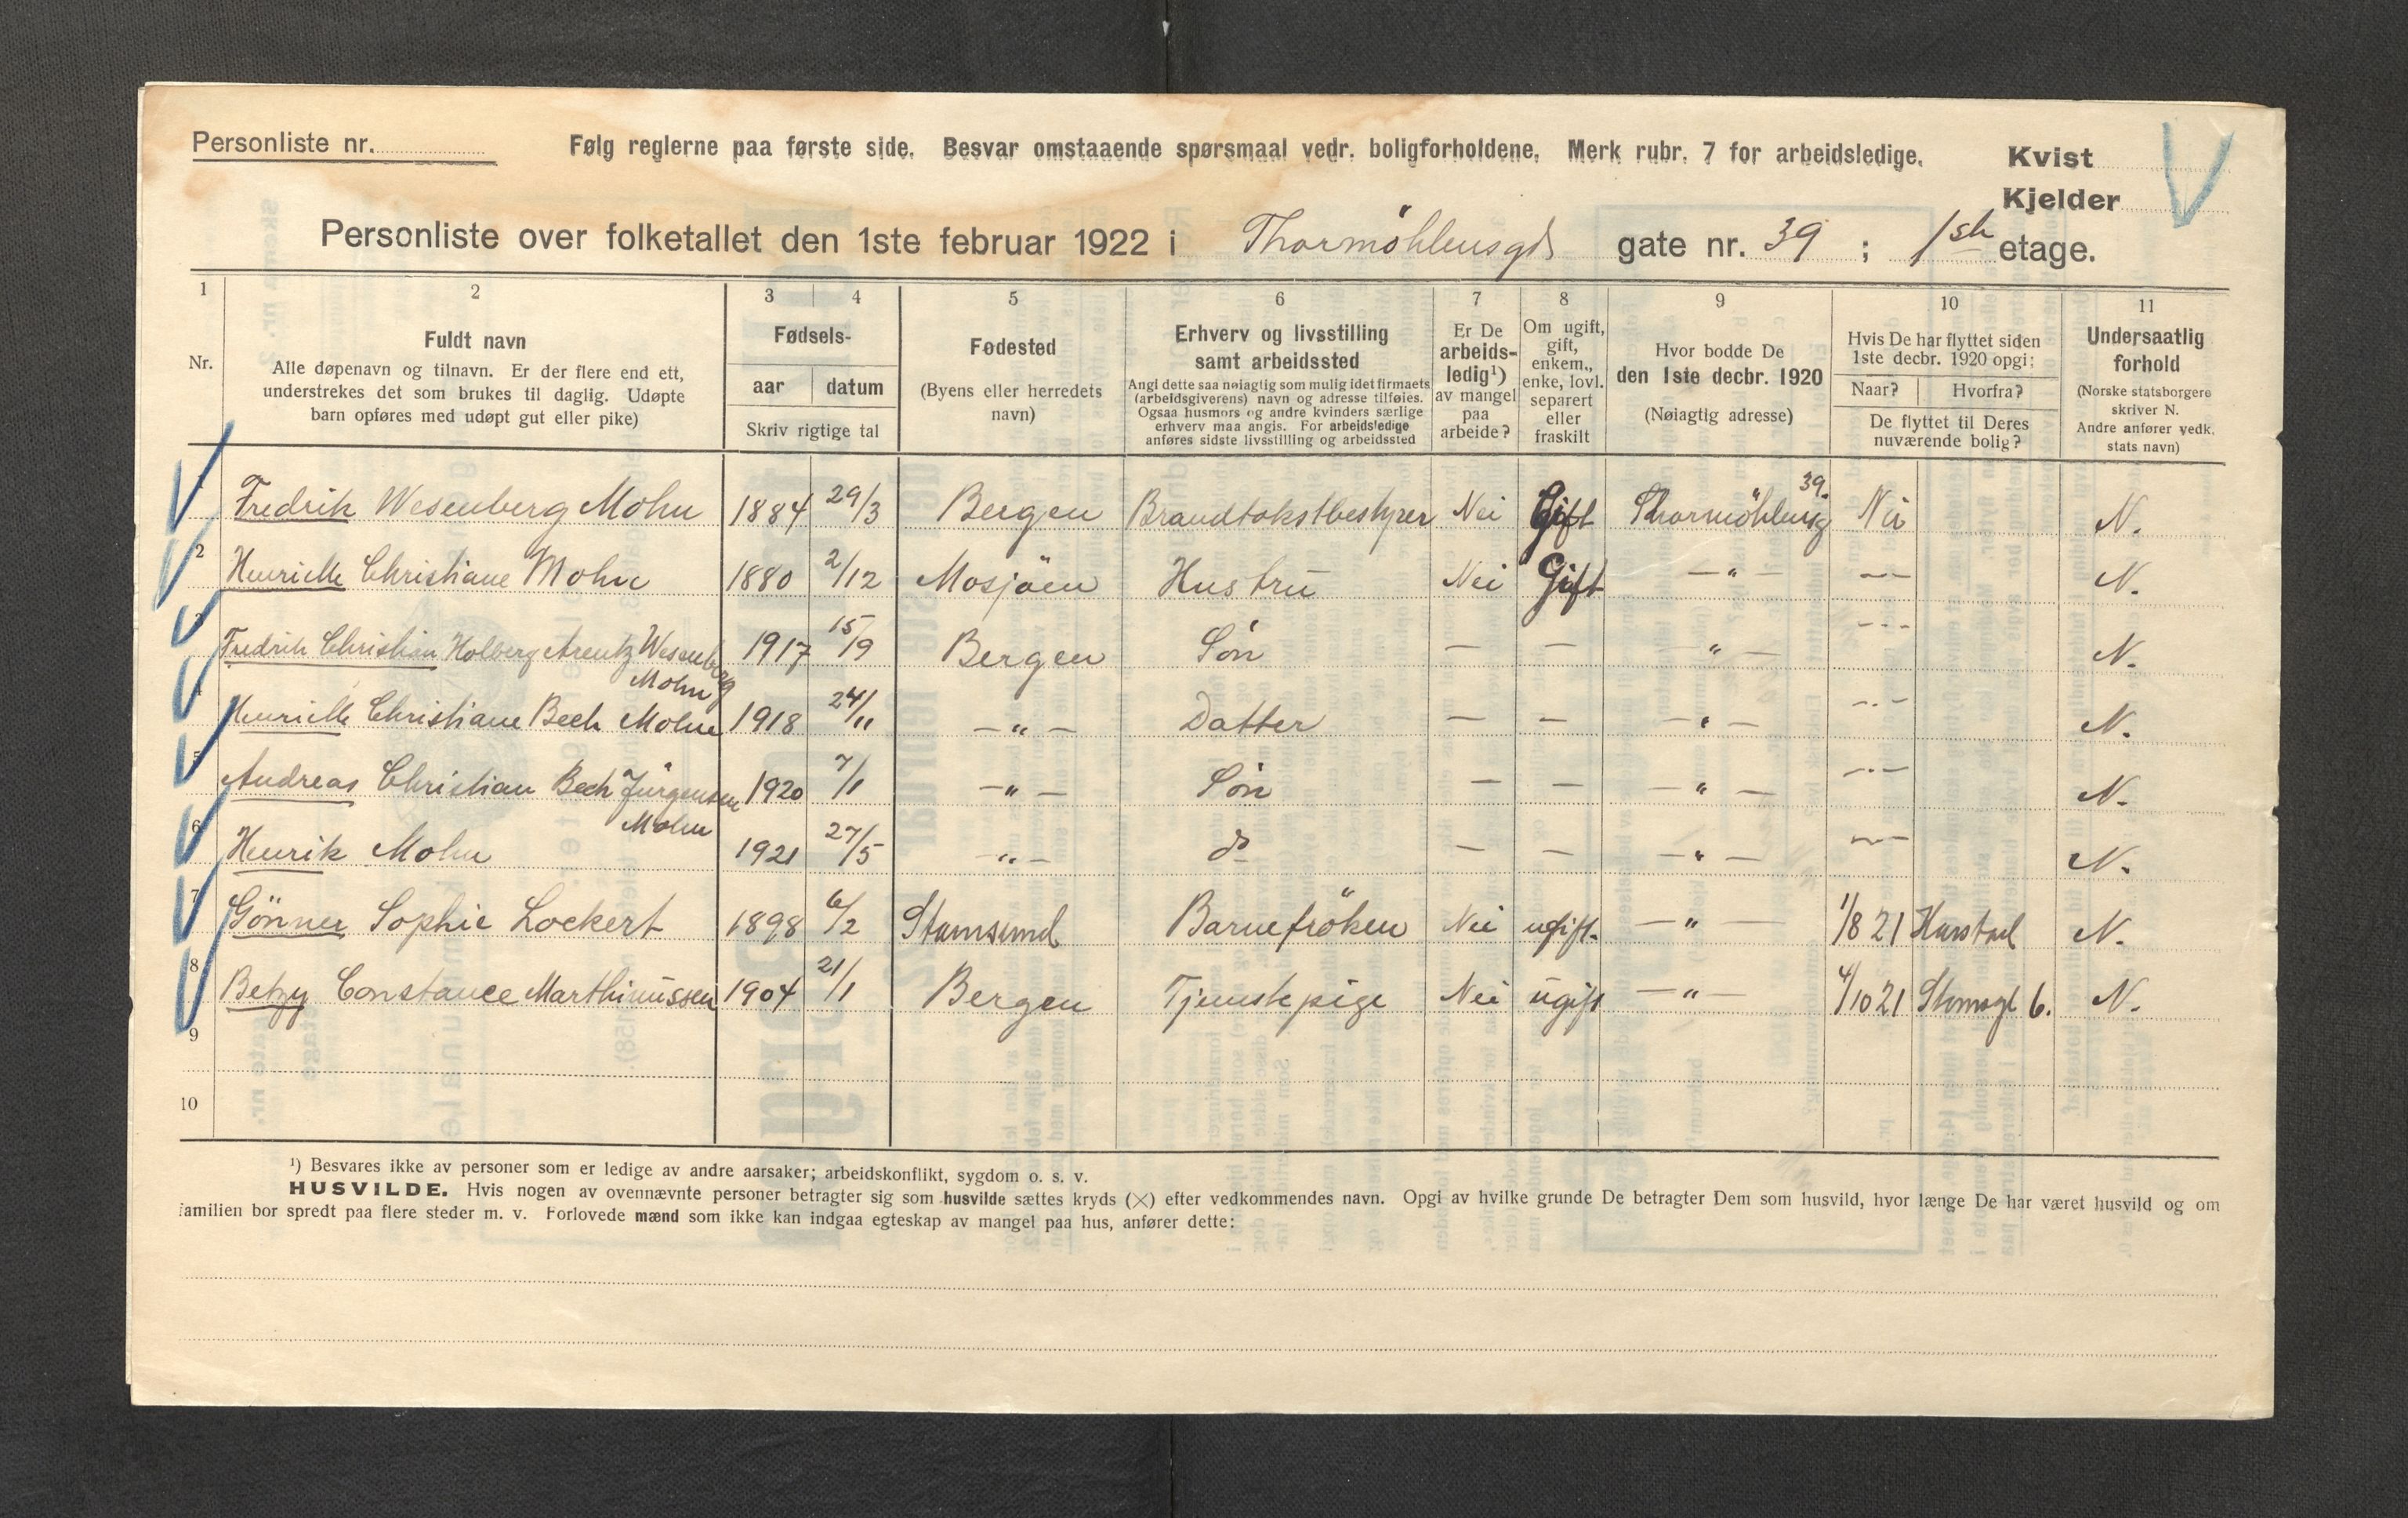 Personliste nr.
Følg reglerne paa første side. Besvar omstaaende spørsmaal vedr. boligforholdene. Merk rubr. 7 for arbeidsledige.
Kvist
Kjelder
Personliste over folketallet den 1ste februar 1922 i Thormöhlensgd gate nr. 39 ; 1ste etage.
1 2 3 4 5 6 7 8 9 10 11
Nr.
Fuldt navn
Alle døpenavn og tilnavn. Er der flere end ett,
understrekes det som brukes til daglig. Udøpte
barn opføres med udøpt gut eller pike)
Fødsels-
aar datum
Skriv rigtige tal
Fødested
(Byens eller herredets
navn)
Erhverv og livsstilling
samt arbeidssted
Angi dette saa nøiagtig som mulig idet firmaets
(arbeidsgiverens) navn og adresse tilføies.
Ogsaa husmors og andre kvinders særlige
erhverv maa angis. For arbeidsledige
anføres sidste livsstilling og arbeidssted
Er De
arbeids-
ledig¹)
av mangel
paa
arbeide?
Om ugift,
gift,
enkem.,
enke, lovl.
separert
eller
fraskilt
Hvor bodde De
den 1ste decbr. 1920
(Nøiagtig adresse)
Hvis De har flyttet siden
1ste decbr. 1920 opgi:
Naar? Hvorfra?
De flyttet til Deres
nuværende bolig?
Undersaatlig
forhold
(Norske statsborgere
skriver N.
Andre anfører vedk.
stats navn)
1 Fredrik Wesenberg Mohn 1884 29/3 Bergen Brandtakstbestyrer Nei Gift Thormöhlensg 39. Nei N.
2 Henriette Christiane Mohn 1880 2/12 Mosjöen Hustru Nei Gift —"— —"— N.
3 Fredrik Christian Holberg Arentz Wesenberg Mohn 1917 15/9 Bergen Sön — — " — —"— N.
4 Henriette Christiane Bech Mohn 1918 24/11 —"— Datter — — —"— —"— N.
5 Andreas Christian Bech Jürgensen Mohn 1920 7/1 —"— Sön — — —"— —"— N.
6 Henrik Mohn 1921 27/5 —"— do — — —"— —"— N.
7 Gönner Sophie Lockert 1898 6/2 Stamsund Barnefröken Nei ugift. —"— 1/8 21 Harstad N.
8 Betzy Constance Marthinussen 1904 21/1 Bergen Tjenstepige Nei ugift —"— 4/10 21 6. N.
9
10
¹) Besvares ikke av personer som er ledige av andre aarsaker; arbeidskonflikt, sygdom o. s. v.
HUSVILDE. Hvis nogen av ovennævnte personer betragter sig som husvilde sættes kryds (×) efter vedkommendes navn. Opgi av hvilke grunde De betragter Dem som husvild, hvor længe De har været husvild og om
familien bor spredt paa flere steder m. v. Forlovede mænd som ikke kan indgaa egteskap av mangel paa hus, anfører dette: